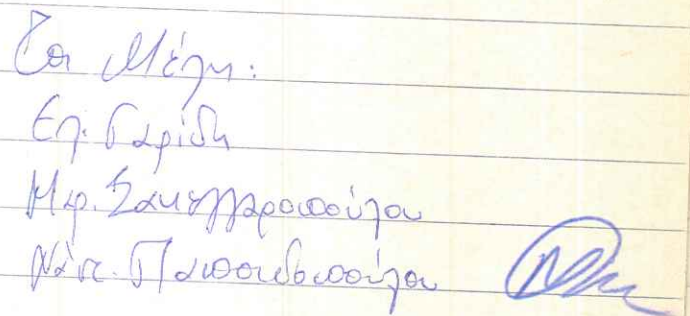 Τα Μέλη:
Ελ. Γαρίδη
Μαρ. Σακελλαροπούλου
Νάπ. Παπουδοπούλου